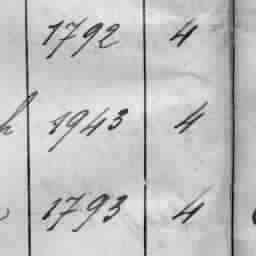 1792 4
1943 4
1793 4